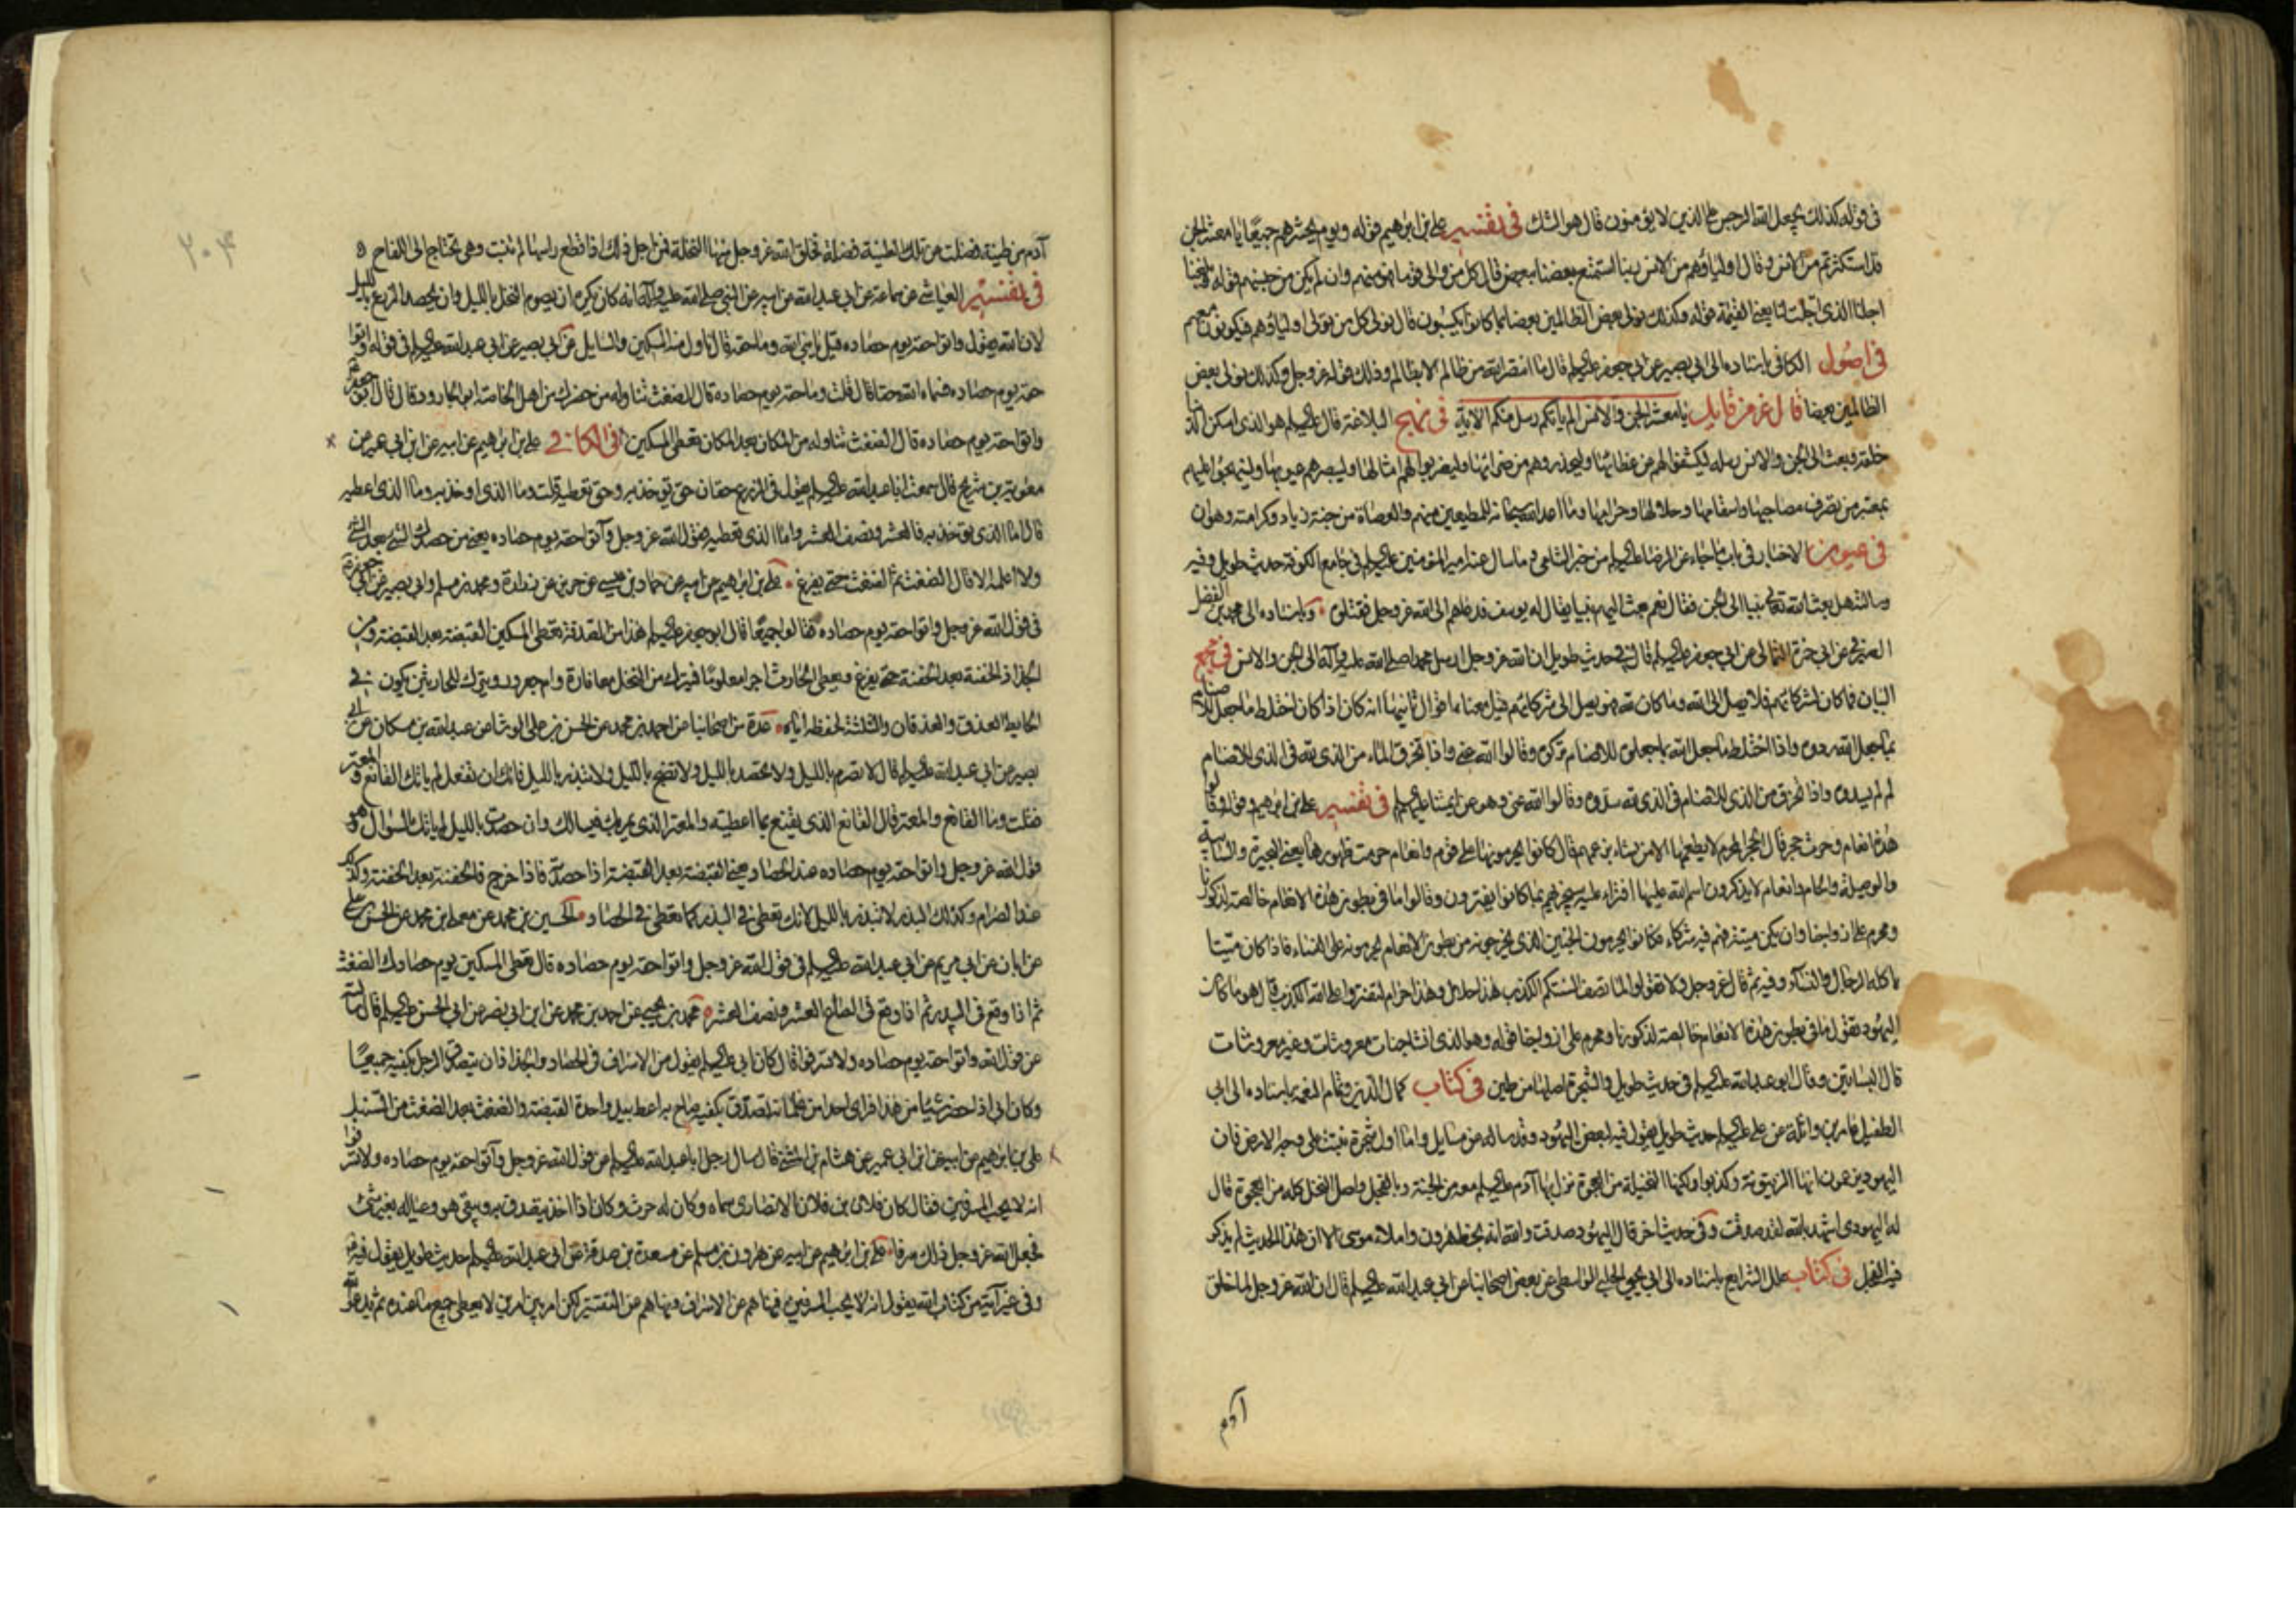 في قوله كذلك يجعل الله الرجس على الذين لا يؤمنون قال هو الشك في تفسير علي بن ابراهيم قوله ويوم يحشرهم جميعا يا معشر الجن
قد استكثرتم من الانس وقال اولياؤهم من الانس ربنا استمتع بعضنا ببعض قال كل من والى قوما فهو منهم وان لم يكن من جنسهم قوله وبلغنا
اجلنا الذي اجلت لنا يعني القيمة قوله وكذلك نولي بعض الظالمين بعضا بما كانوا يكسبون قال نولي كل من تولى اولياؤهم فيكونون معهم
في اصول الكافي باسناده الى ابي بصير عن ابي جعفر عليه السلم قال ما انتصر الله من ظالم الا بظالم وذلك قوله عز وجل وكذلك نولي بعض
الظالمين بعضا قال عز من قايل يا معشر الجن والانس الم ياتكم رسل منكم الاية في نهج البلاغة قال عليه السلم هو الذي اسكن الدنيا
خلقه وبعث الى الجن والانس رسله ليكشفوا لهم عن غطائها وليحذروهم من ضرائها وليضربوا لهم امثالها وليبصرهم عيوبها وليهجموا عليهم
بمعتبر من تصرف مصاحها واسقامها وحلالها وحرامها وما اعد الله سبحانه للمطيعين منهم والعصاة من جنة ونار وكرامة وهوان
في عيون الاخبار في باب ما جاء عن الرضا عليه السلم من خبر الشامي وما سال عنه امير المؤمنين عليه السلم في جامع الكوفة حديث طويل وفيه
وسالته هل بعث الله تعالى نبيا الى الجن فقال نعم بعث اليهم نبيا يقال له يوسف فدعاهم الى الله عز وجل فقتلوه وباسناده الى محمد بن الفضل
عن ابي حمزة الثمالي عن ابي جعفر عليه السلم قال في حديث طويل ان الله عز وجل ارسل محمدا صلى الله عليه وآله الى الجن والانس في مجمع
البيان فما كان لشركائهم فلا يصل الى الله وما كان لله فهو يصل الى شركائهم قيل معناه اقوال ثانيها انه كان اذا كان اختلط ما جعل للاصنام
بما جعل لله ردوه واذا اختلط ما جعل لله بما جعلوه للاصنام تركوه وقالوا الله غني واذا تخرق الماء من الذي لله في الذي للاصنام
لم يسدوه واذا تخرق من الذي للاصنام في الذي لله سدوه وقالوا الله غني وهو عن ائمتنا عليهم السلم في تفسير علي بن ابراهيم وقوله وقالوا
هذه انعام وحرث حجر قال الحجر المحرم لا يطعمها الا من نشاء بزعمهم قال كانوا يحرمونها على قوم وانعام حرمت ظهورها يعني البحيرة والسائبة
والوصيلة والحام وانعام لا يذكرون اسم الله عليها افتراء عليه سيجزيهم بما كانوا يفترون وقالوا ما في بطون هذه الانعام خالصة لذكورنا
ومحرم على ازواجنا وان يكن ميتة فهم فيه شركاء فكانوا يحرمون الجنين الذي يخرجونه من بطون الانعام يحرمونه على النساء فاذا كان ميتا
ياكله الرجال والنساء وفيه ثم قال عز وجل ولا تقولوا لما تصف السنتكم الكذب هذا حلال وهذا حرام لتفتروا على الله الكذب قال هو ما كانت
اليهود تقول ما في بطون هذه الانعام خالصة لذكورنا ومحرم على ازواجنا قوله وهو الذي انشا جنات معروشات وغير معروشات
قال البساتين وقال ابو عبد الله عليه السلم في حديث طويل والشجرة اصلها من طين في كتاب كمال الدين وتمام النعمة باسناده الى ابي
الطفيل عامر بن واثلة عن علي عليه السلم حديث طويل يقول فيه لبعض اليهود وقد ساله عن مسايل واما اول شجرة نبتت على وجه الارض فان
اليهود يزعمون انها الزيتونة وكذبوا ولكنها النخيلة من العجوة نزل بها آدم عليه السلم معه من الجنة وبالفحل واصل النخل كله من العجوة قال
له اليهودي اشهد بالله لقد صدقت وفي حديث اخر قال اليهود صدقت والله انه بخط هرون واملاء موسى الا ان هذا الحديث لم يذكر
فيه الفحل في كتاب علل الشرايع باسناده الى ابي يحيى الواسطي عن بعض اصحابنا عن ابي عبد الله عليه السلم قال ان الله عز وجل لما خلق
آدم
٢٠٤
آدم من طينة فضلت من تلك الطينة فضلة فخلق الله عز وجل منها النخلة فمن اجل ذلك اذا قطع راسها لم تنبت وهي تحتاج الى اللقاح
في تفسير العياشي عن سماعة عن ابي عبد الله عن ابيه عن النبي صلى الله عليه وآله انه كان يكره ان يصرم النخل بالليل وان يحصد الزرع بالليل
لان الله يقول واتوا حقه يوم حصاده قيل يا نبي الله وما حقه قال ناول منه المسكين والسايل عن ابي بصير عن ابي عبد الله عليه السلم في قوله واتوا
حقه يوم حصاده فسماه الله حقا قال قلت وما حقه يوم حصاده قال الضغث تناوله من حضرك من اهل الخاصة ابو الجارود قال قال ابو جعفر
واتوا حقه يوم حصاده قال الضغث تناوله من المكان بعد المكان تعطي المسكين في الكافي علي بن ابراهيم عن ابيه عن ابن ابي عمير عن
معوية بن شريح قال سمعت ابا عبد الله عليه السلم يقول في الزرع حقان حق تؤخذ به وحق تعطيه قلت وما الذي اوخذ به وما الذي اعطيه
قال اما الذي تؤخذ به فالعشر ونصف العشر واما الذي تعطيه فقول الله عز وجل وآتوا حقه يوم حصاده يعني من حصدك الشيء بعد الشيء
ولا اعلمه الا قال الضغث ثم الضغث حتى يفرغ علي بن ابراهيم عن ابيه عن حماد بن عيسى عن حريز عن زرارة ومحمد بن مسلم وابي بصير عن ابي جعفر
في قول الله عز وجل واتوا حقه يوم حصاده فقالوا جميعا قال ابو جعفر عليه السلم هذا من الصدقة تعطي المسكين القبضة بعد القبضة ومن
الجذاذ الحفنة بعد الحفنة حتى يفرغ ويعطي الحارث اجرا معلوما فيترك من النخل معافارة وام جعرور ويترك للحارس يكون في
الحايط العذق والعذقان والثلثة لحفظه اياه عدة من اصحابنا عن احمد بن محمد عن الحسن بن علي الوشا عن عبد الله بن مسكان عن ابي
بصير عن ابي عبد الله عليه السلم قال لا تصرم بالليل ولا تحصد بالليل ولا تضح بالليل ولا تبذر بالليل فانك ان تفعل لم ياتك القانع والمعتر
فقلت وما القانع والمعتر قال القانع الذي يقنع بما اعطيته والمعتر الذي يمر بك فيسالك وان حصدت بالليل لم ياتك السؤال وهو
قول الله عز وجل واتوا حقه يوم حصاده عند الحصاد يعني القبضة بعد القبضة اذا حصدته فاذا خرج فالحفنة بعد الحفنة وكذلك
عند الصرام وكذلك البذر لا تبذر بالليل لانك تعطي في البذر كما تعطي في الحصاد الحسين بن محمد عن معلى بن محمد عن الحسن بن علي
عن ابان عن ابي مريم عن ابي عبد الله عليه السلم في قول الله عز وجل واتوا حقه يوم حصاده قال تعطي المسكين يوم حصادك الضغث
ثم اذا وقع في البيدر ثم اذا وقع في الصاع العشر ونصف العشر محمد بن يحيى عن احمد بن محمد عن ابن ابي نصر عن ابي الحسن عليه السلم قال سالته
عن قول الله واتوا حقه يوم حصاده ولا تسرفوا قال كان ابي عليه السلم يقول من الاسراف في الحصاد والجذاذ ان يتصدق الرجل بكفيه جميعا
وكان ابي اذا حضر شيئا من هذا فراى احدا من غلمانه تصدق بكفيه صاح به اعط بيد واحدة القبضة والضغث بعد الضغث من السنبل
علي بن ابراهيم عن ابيه عن ابن ابي عمير عن هشام بن المثنى قال سال رجل ابا عبد الله عليه السلم عن قول الله عز وجل وآتوا حقه يوم حصاده ولا تسرفوا
انه لا يحب المسرفين فقال كان فلان بن فلان الانصاري سماه وكان له حرث وكان اذا اخذ يتصدق به ويبقى هو وعياله بغير شيء
فجعل الله عز وجل ذلك سرفا علي بن ابراهيم عن ابيه عن هرون بن مسلم عن مسعدة بن صدقة عن ابي عبد الله عليه السلم حديث طويل يقول فيه
وفي غير آية من كتاب الله يقول انه لا يحب المسرفين فنهاهم عن الاسراف ونهاهم عن التقتير لكن امر بين امرين لا يعطي جميع ما عنده ثم يدعو الله